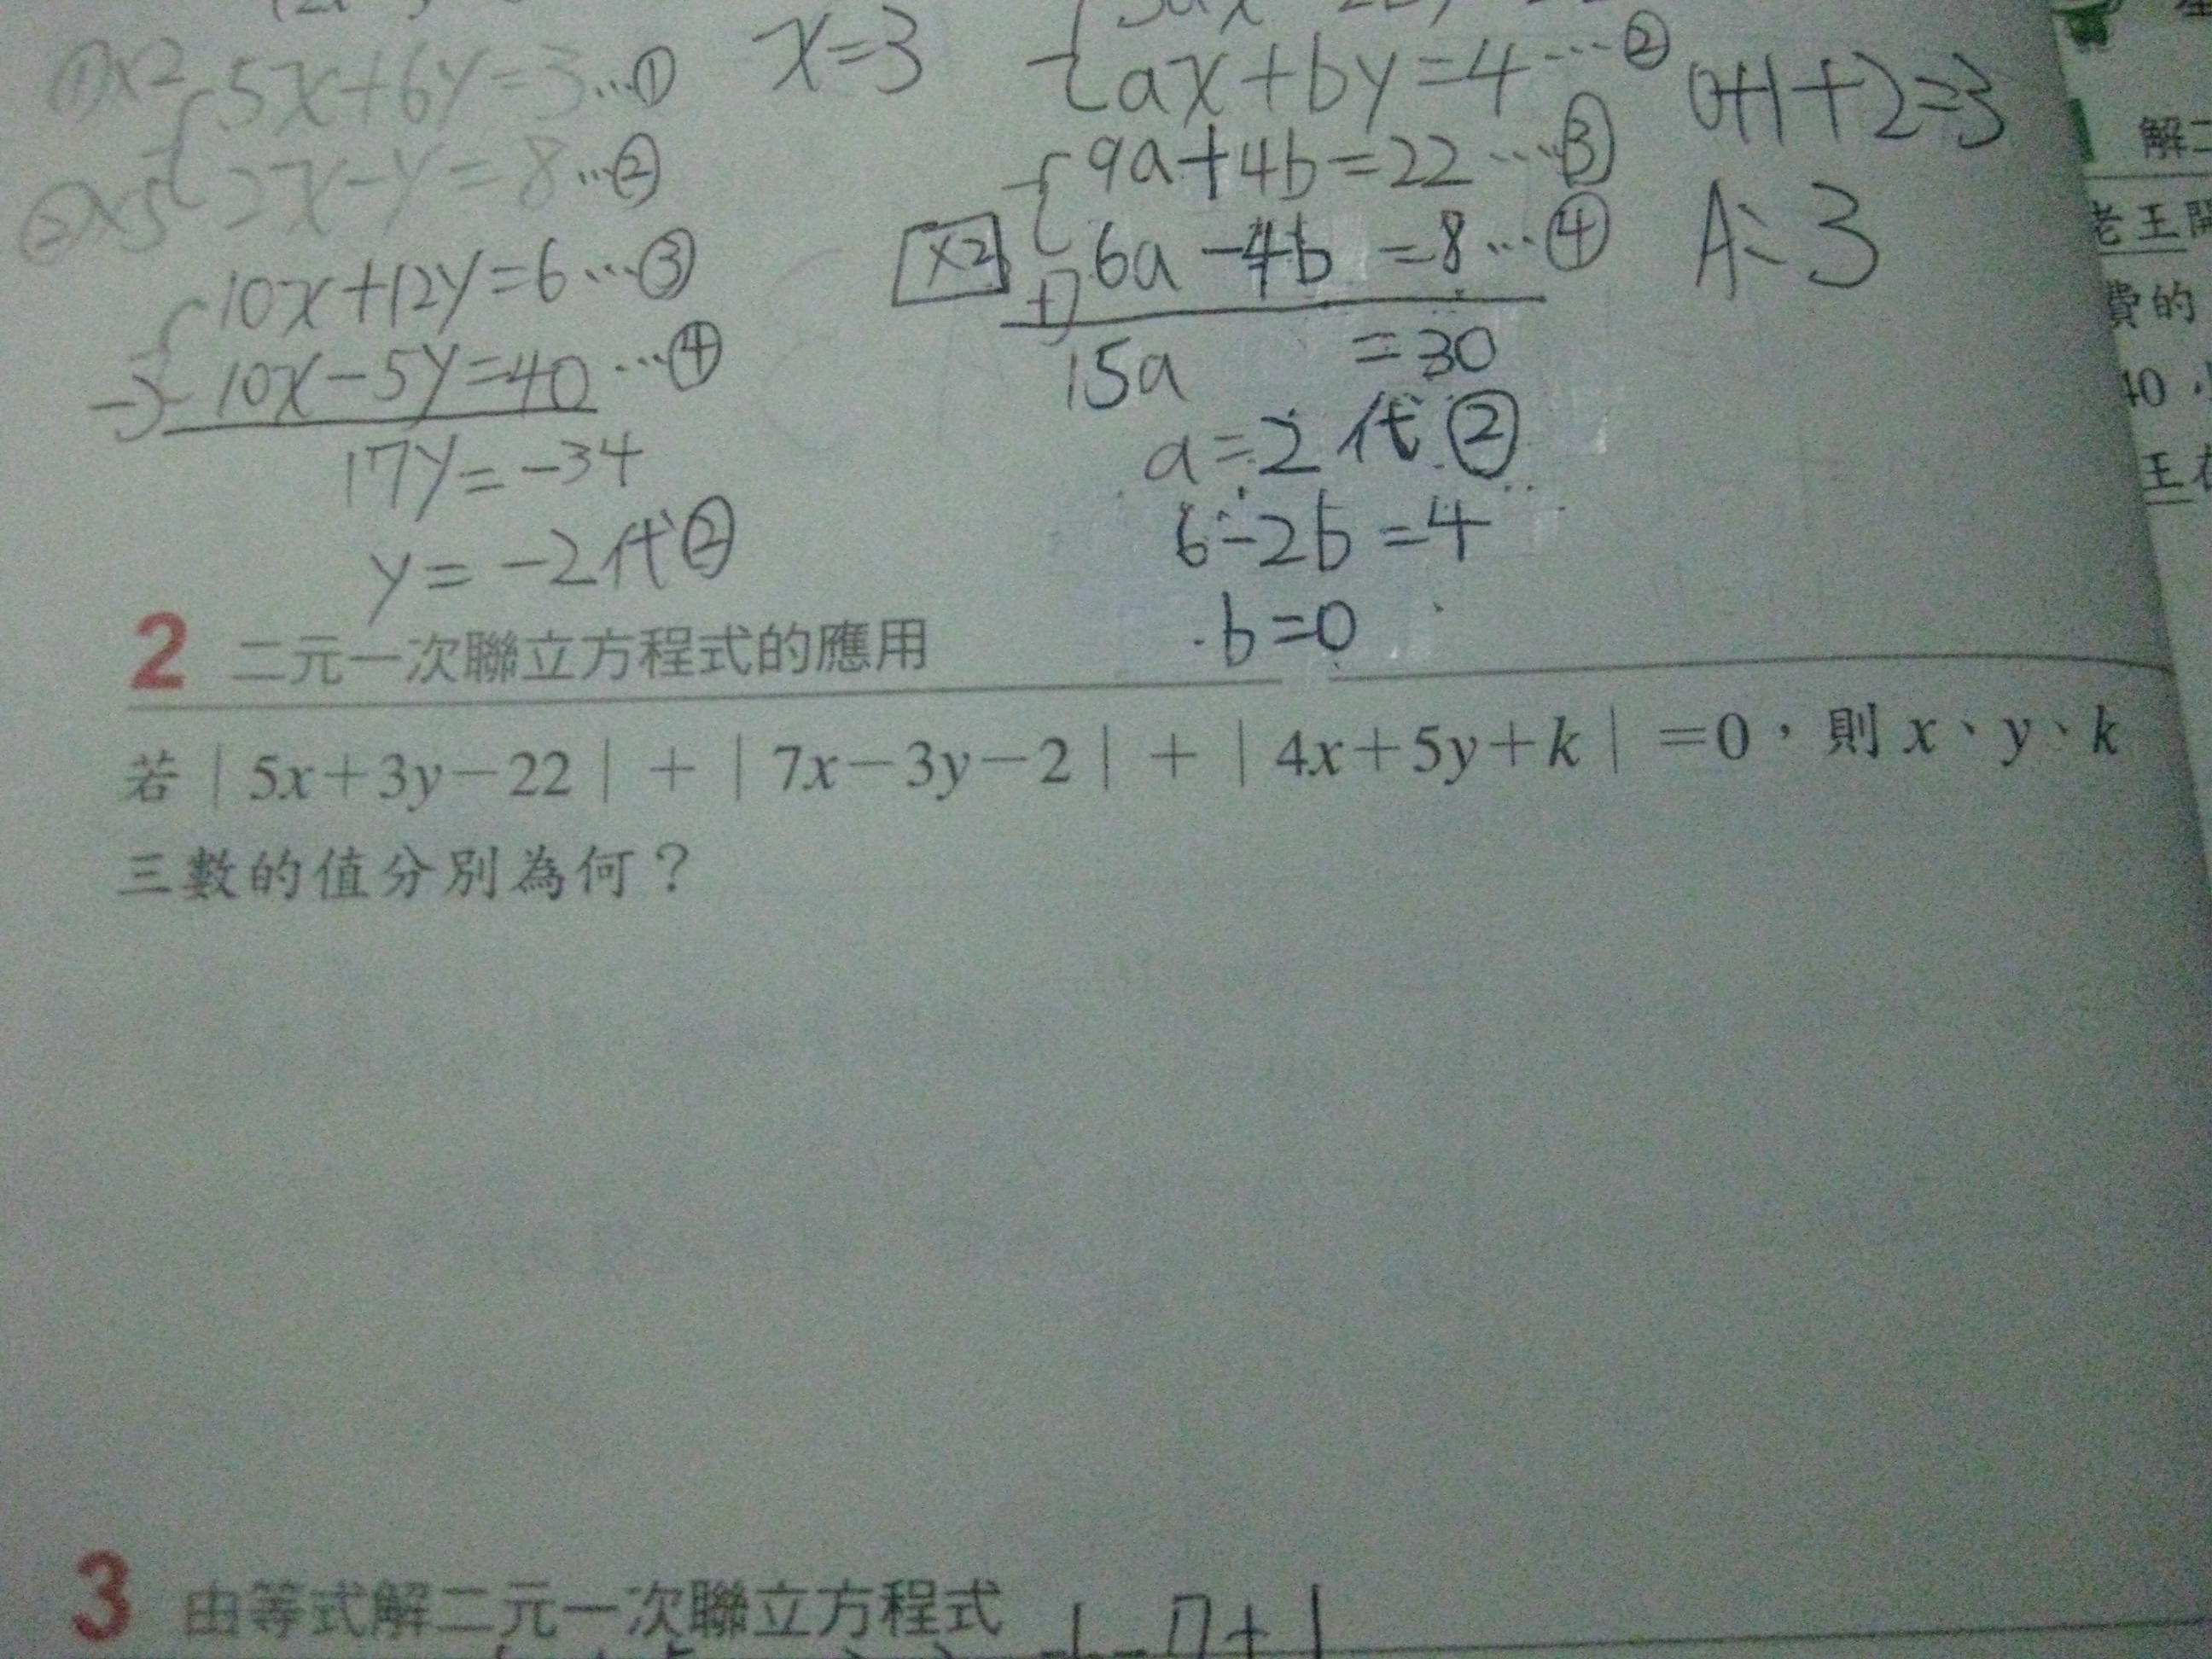 ①×2 5x+6y=3…①
②×5 2x-y=8…②
10x+12y=6…③
-) 10x-5y=40…④
17y=-34
y=-2代②
x=3
ax+by=4…②
9a+4b=22…③
×2 6a-4b=8…④
+)
15a =30
a=2代②
6-2b=4
b=0
0+1+2=3
A:3
2 二元一次聯立方程式的應用
若|5x+3y-22|+|7x-3y-2|+|4x+5y+k|=0,則x、y、k
三數的值分別為何?
3 由等式解二元一次聯立方程式
解二
老王開
費的
40
王在